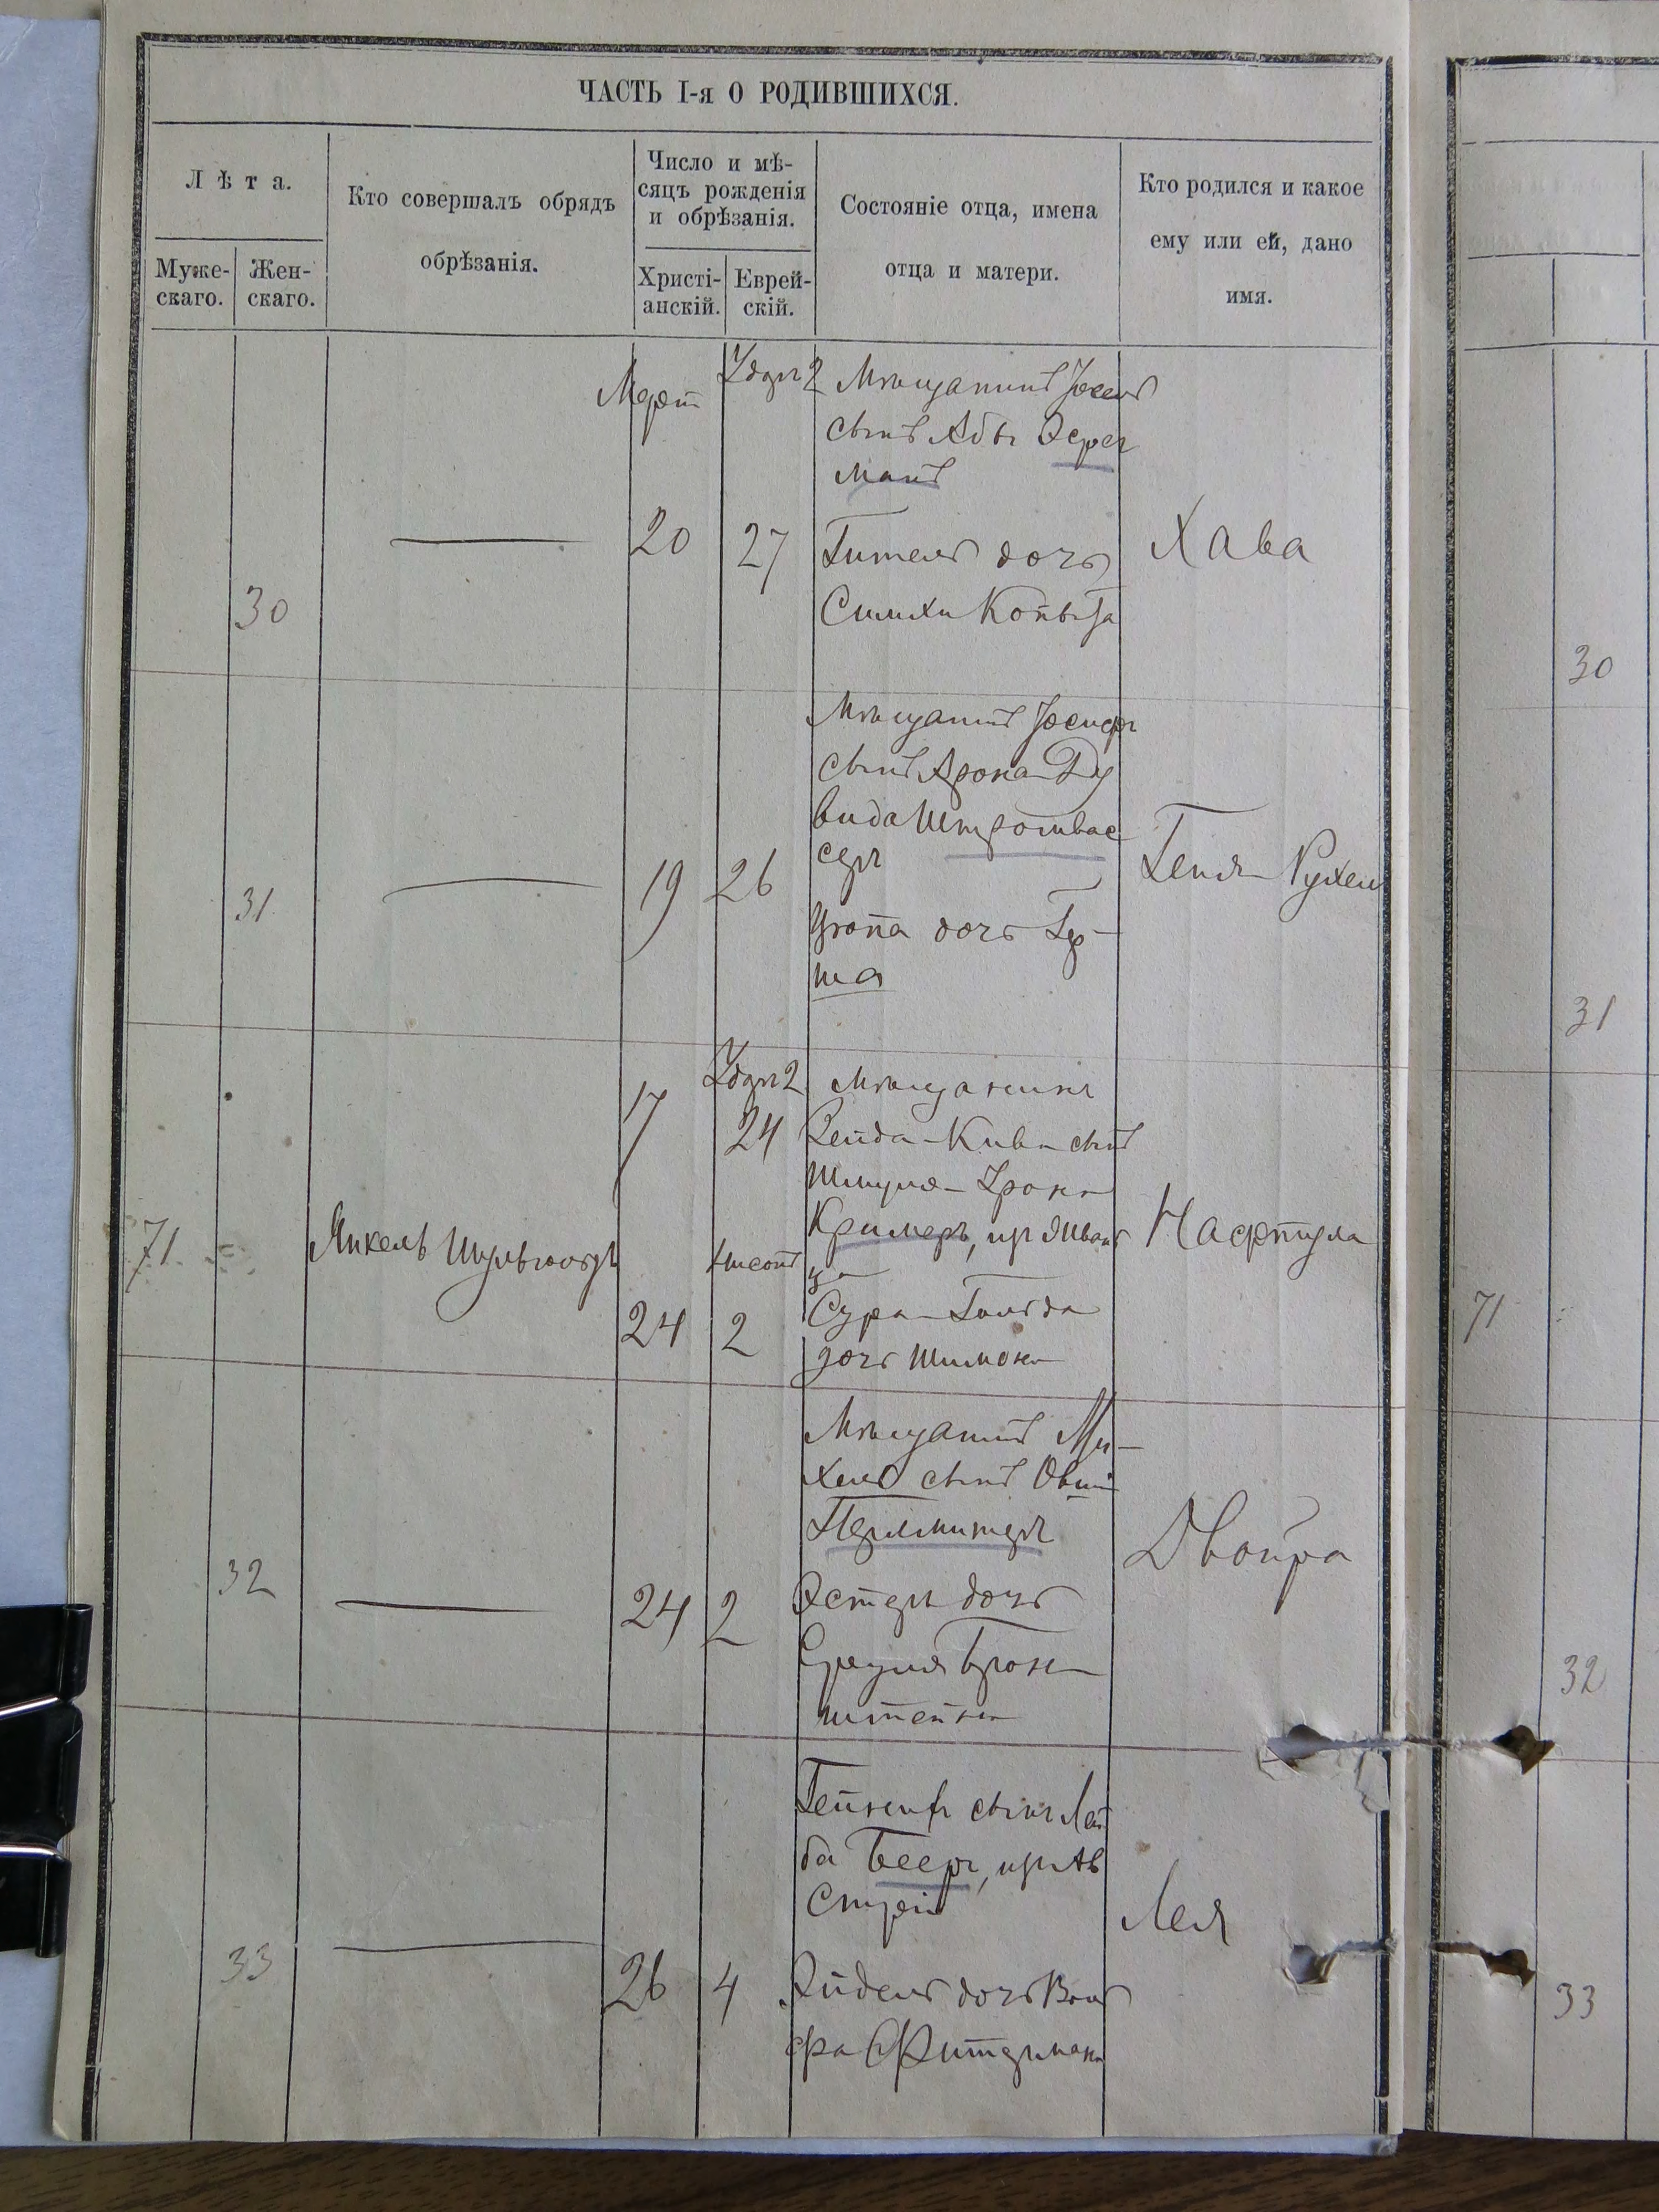 ЧАСТЬ I-я О РОДИВШИХСЯ.
Лѣта.
Муже-
скаго.
Жен-
скаго.
Кто совершалъ обрядъ
обрѣзанія.
Число и мѣ-
сяцъ рожденія
и обрѣзанія.
Христі-
анскій.
Еврей-
скій.
Состояніе отца, имена
отца и матери.
Кто родился и какое
ему или ей, дано
имя.
30
Мартъ
20
Адаръ 2
27
Мѣщанинъ Іосель
сынъ Абы
манъ
Гитель дочь
Симхи Копыта
Хава
30
31
19
26
Мѣщанинъ Іосифъ
сынъ Арона Да
вида Штромвас
серъ
дочь Гер-
ша
Геня Рухель
31
71
Янкель
17
24
Адаръ 2
24
2
Мѣщанинъ
Зейда-Кива сынъ
Шмуля-Арона
Кримеръ,
ца
Сура-Гольда
дочь Шимона
Нафтула
71
32
24
2
Мѣщанинъ Ми-
хель сынъ Овшія
Перлмитеръ
Эстеръ дочь
Сруля Брон
штейна
Двойра
32
33
26
4
Гейнихъ сынъ Лей
ба Бееръ,
Эйдель дочь Воль
фа
Лея
33